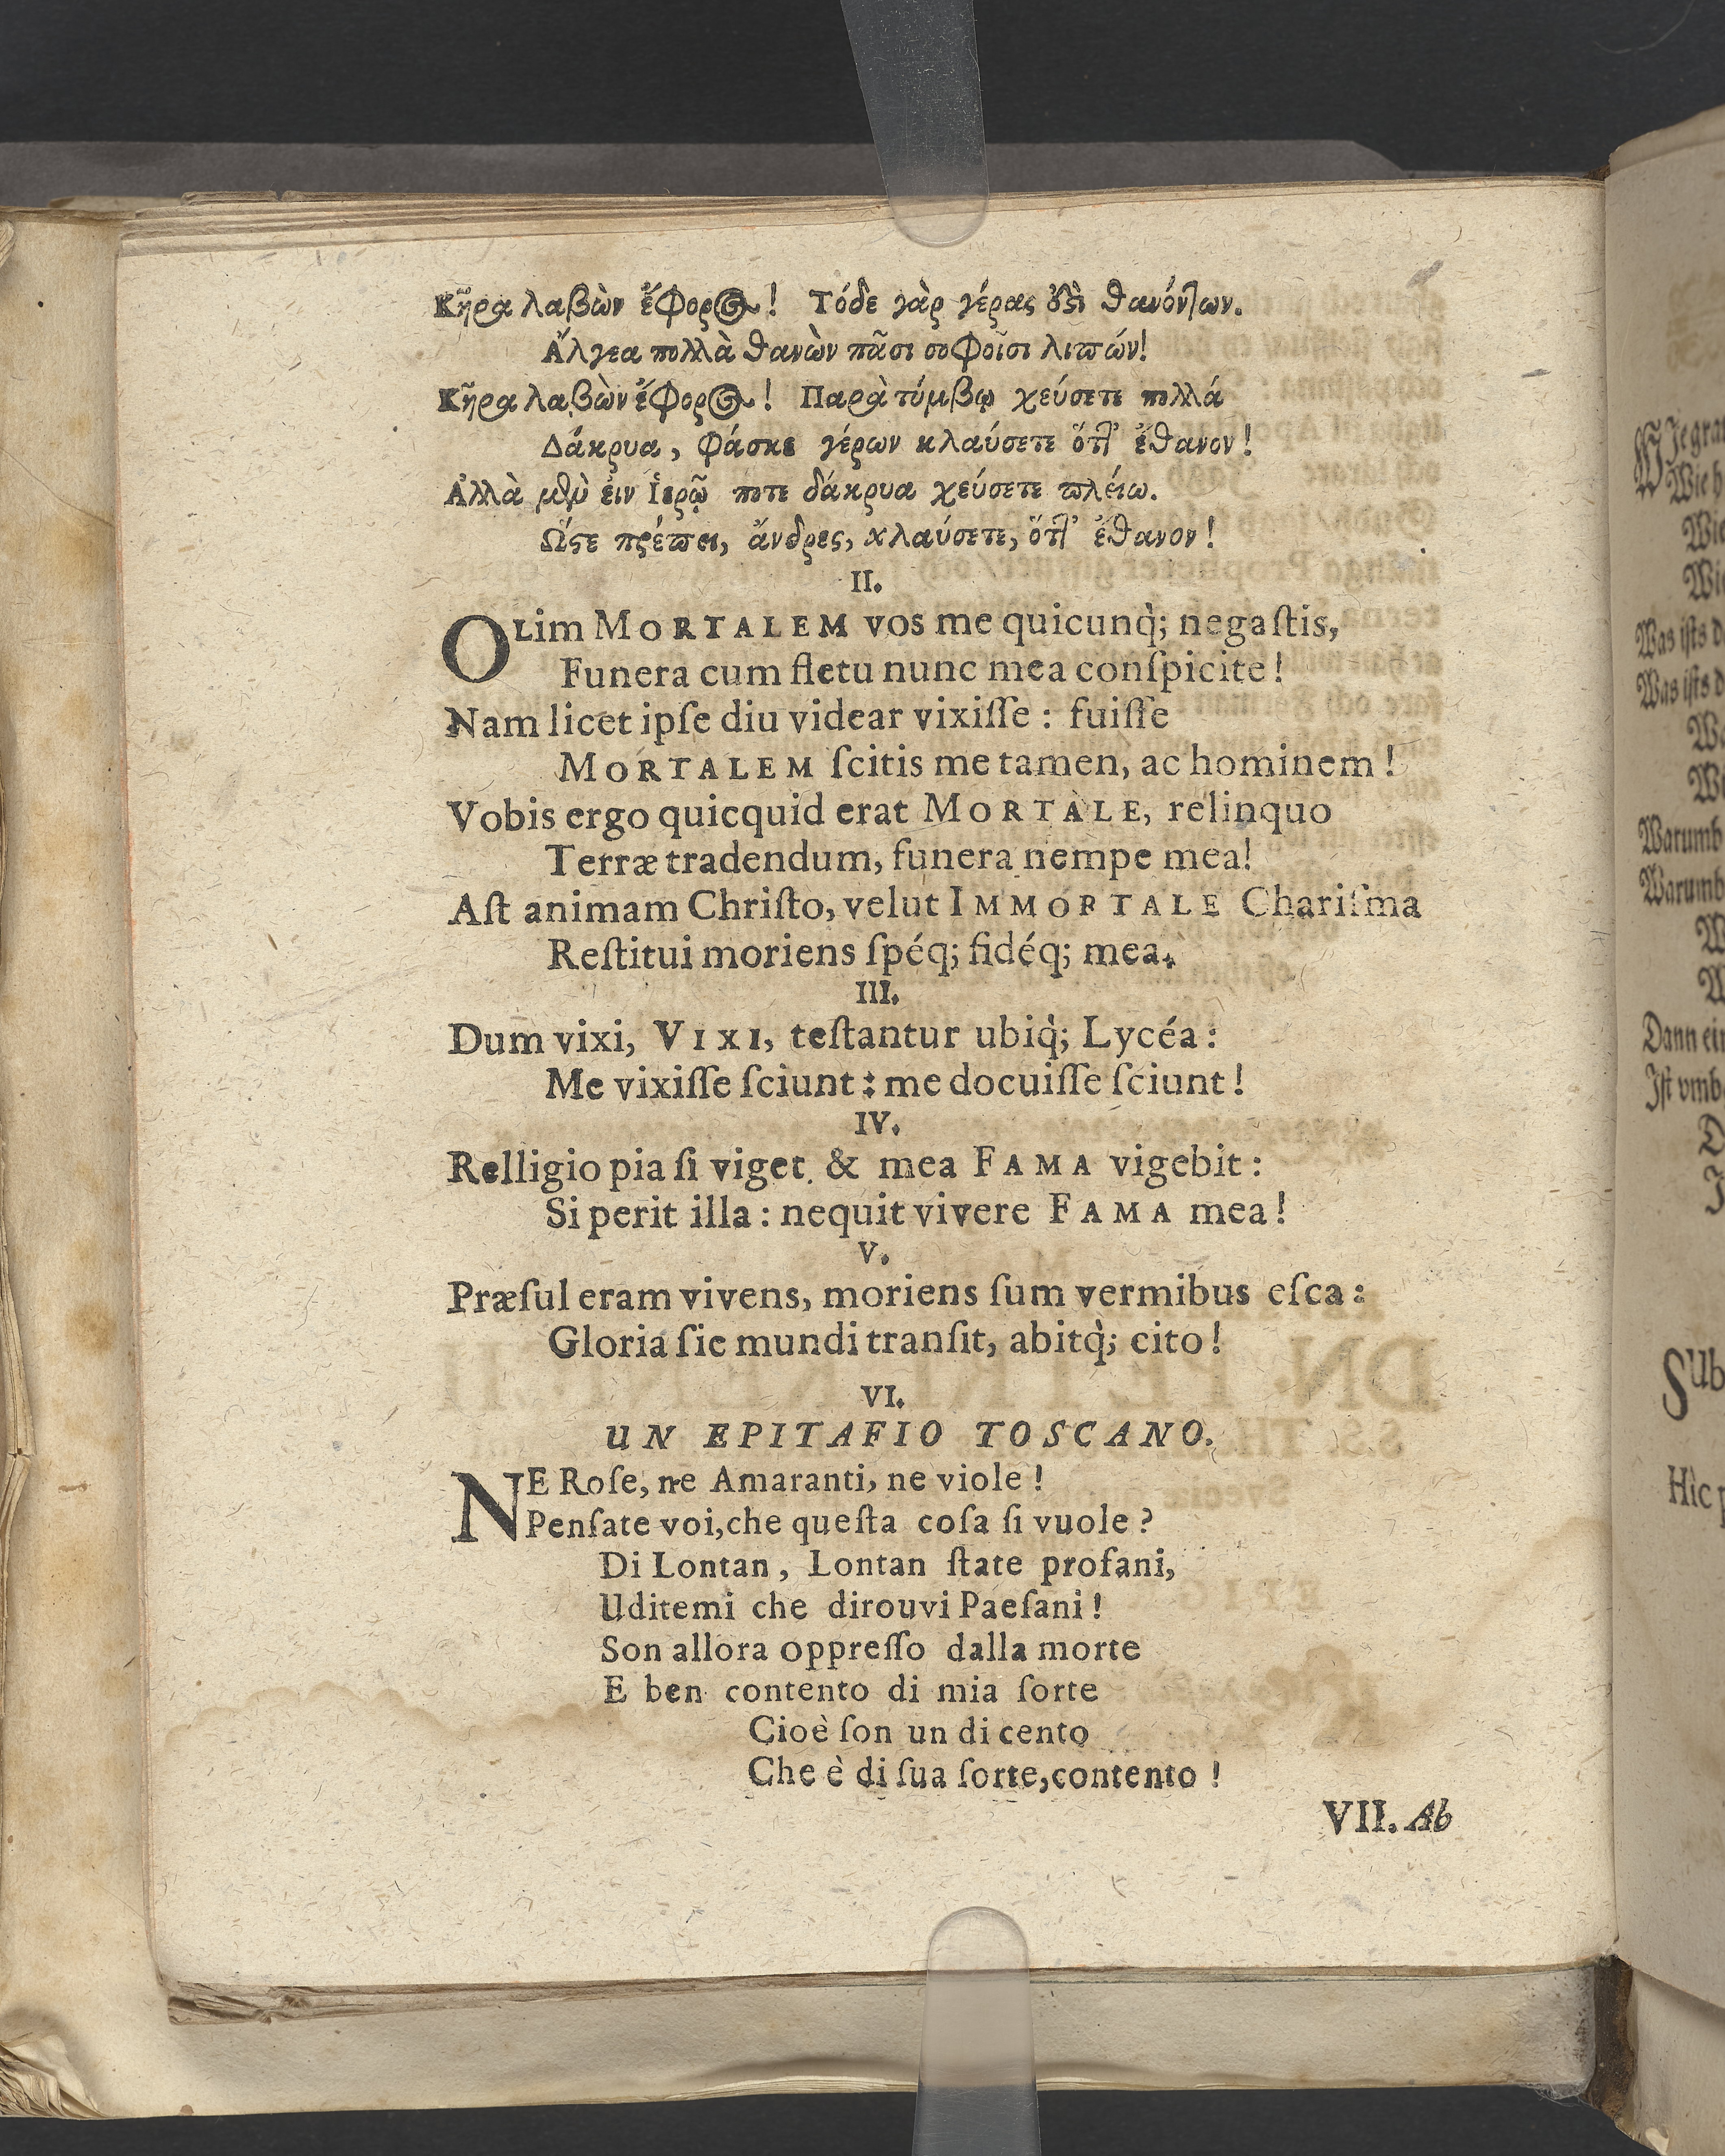 Κῆρα λαβὼν ἔφορος! Τόδε γὰρ γέρας ἐστὶ θανόντων.
Ἄλγεα πολλὰ θανὼν πᾶσι σοφοῖσι λιπών!
Κῆρα λαβὼν ἔφορος! Παρὰ τύμβῳ χεύσετε πολλά
Δάκρυα, φάσκε γέρων κλαύσετε ὅττ' ἔθανον!
Ἀλλὰ μὲν εἰν Ἱερῷ ποτε δάκρυα χεύσετε πλείω.
Ὥστε πρέπει, ἄνδρες, κλαύσετε, ὅττ' ἔθανον!
II.
OLim MORTALEM vos me quicunq̀; negaſtis,
Funera cum fletu nunc mea conſpicite!
Nam licet ipſe diu videar vixiſſe: fuiſſe
MORTALEM ſcitis me tamen, ac hominem!
Vobis ergo quicquid erat MORTALE, relinquo
Terræ tradendum, funera nempe mea!
Aſt animam Chriſto, velut IMMORTALE Chariſma
Reſtitui moriens ſpéq; fidéq; mea.
III.
Dum vixi, VIXI, teſtantur ubiq̀; Lycéa:
Me vixiſſe ſciunt: me docuiſſe ſciunt!
IV.
Relligio pia ſi viget, & mea FAMA vigebit:
Si perit illa: nequit vivere FAMA mea!
V.
Præſul eram vivens, moriens ſum vermibus eſca:
Gloria ſic mundi tranſit, abitq̀; cito!
VI.
UN EPITAFIO TOSCANO.
NE Roſe, ne Amaranti, ne viole!
Penſate voi, che queſta coſa ſi vuole?
Di Lontan, Lontan ſtate profani,
Uditemi che dirouvi Paeſani!
Son allora oppreſſo dalla morte
E ben contento di mia ſorte
Cioè ſon un di cento
Che è di ſua ſorte, contento!
VII. Ab
Was iſts
Was iſts
Warumb
Warumb
Dann
Iſt vmb
Hìc